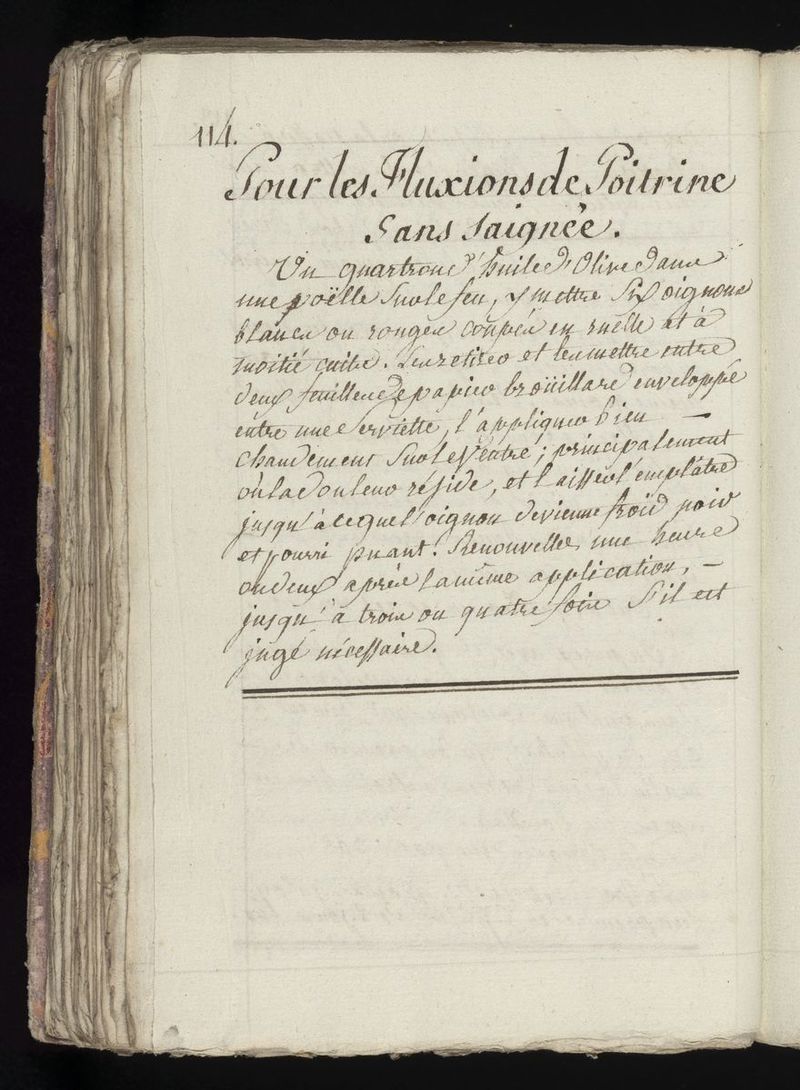 114.
Pour les Fluxions de Poitrine
Sans Saignée.
Un quartron d'huile d'Olive dans
une poëlle sur le feu, y mettre Six oignons
blancs ou rouges coupés en ruelle et à
moitié cuits. Les retirer et les mettre entre
deux feuilles de papier broüillard enveloppé
entre une Serviette, l'appliquer bien —
chaudement sur le Ventre; principalement
où la douleur réside, et laisser l'emplâtre
jusqu'à ce que l'oignon devienne froid noir
et pourri puant. Renouveller une heure
ou deux après la même application, —
jusqu'à trois ou quatre fois S'il est
jugé nécessaire.